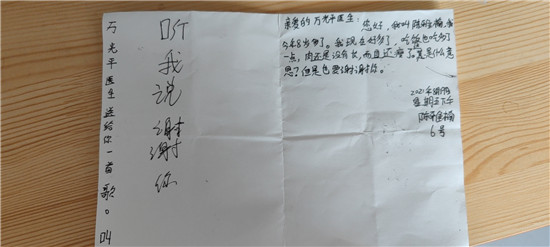 万光平医生送给你一首歌。叫
听我说谢谢你
亲爱的万光平医生：您好，我叫陈楠，我
今年8岁多了。我现在好多了，吃饭也吃多了
一点，肉还是没有长，而且还瘦了，是什么意
思？但是也要谢谢你。
2021年
星期五下午
陈楠
6号